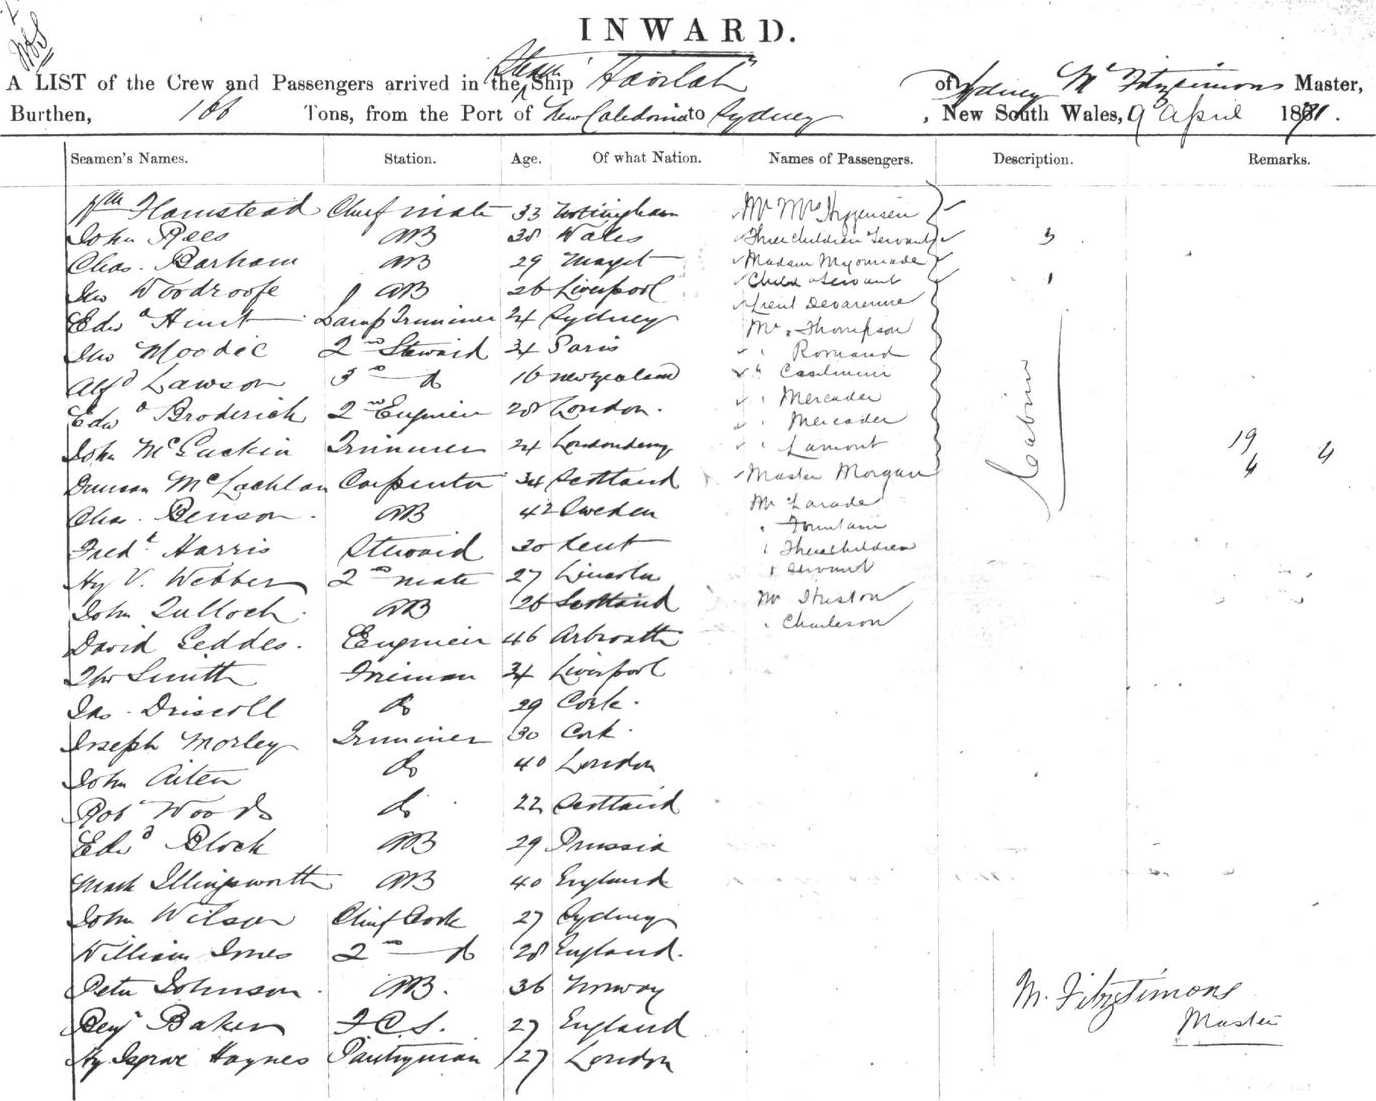 INWARD.
A LIST of the Crew and Passengers arrived in the Steam Ship "Havilah" of Sydney M. Fitzsimons Master,
Burthen, 166 Tons, from the Port of New Caledonia to Sydney, New South Wales, 9 April 1871.
Seamen's Names. Station. Age. Of what Nation. Names of Passengers. Description. Remarks.
Wm Flamstead Chief mate 33 Nottingham Mr Mrs
John Rees AB 38 Wales Three children Servant 3
Chas. Barham AB 29 Madam
Jno Woodroofe AB 26 Liverpool Child & Servant 1
Edwd Hunt Lamp Trimmer 24 Sydney Lieut Devarenne
Jno Moodie 2nd Steward 34 Paris Mr. Thompson
Alfd Lawson 3rd do 16 New Zealand " Romand
Edwd Broderick 2nd Engineer 28 London. " Mercader
John McGuckin Trimmer 24 Londonderry " Mercader
Duncan McLachlan Carpenter 34 Scotland " Lamont
Chas. Benson AB 42 Sweden Master Morgan
Fredk Harris Steward 30 Kent Mr Larade
Hy V. Webber 2nd mate 27 Lincoln " Fountain
John Tulloch. AB 26 Scotland " Three Children
David Geddes. Engineer 46 Arbroath " Servant
Thos Smith Fireman 34 Liverpool Mr Huston
Jas. Driscoll do 29 Cork. " Charleson
Joseph Morley Trimmer 30 Cork.
John Aiten do 40 London
Robt Woods do 22 Scotland
Edwd Block AB 29 Prussia
Mark Illingsworth AB 40 England
John Wilson Chief Cook 27 Sydney
William Innes 2nd do 28 England.
Peter Johnson. AB. 36 Norway
Benj Baker F.C.S. 27 England
Hy Haynes Pantryman 27 London
Cabin
19
4 4
M. Fitzsimons
Master